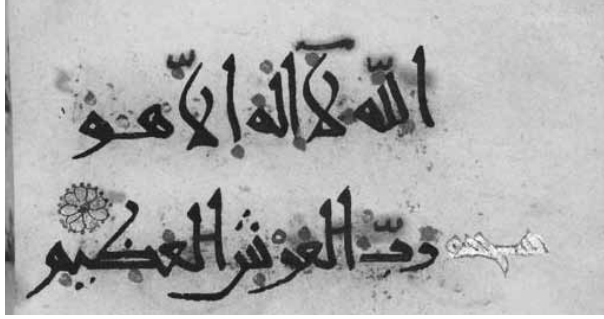 اللّٰه لآ اله الّا هو
ربّ العرش العظيم